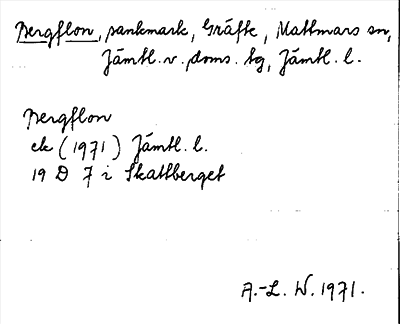 Bergflon, sankmark, Gräfte, Mattmars sn,
Jämtl. v. doms. tg, Jämtl. l.
Bergflon
ek (1971) Jämtl. l.
19 D 7 i Skattberget
A.-L. W. 1971.